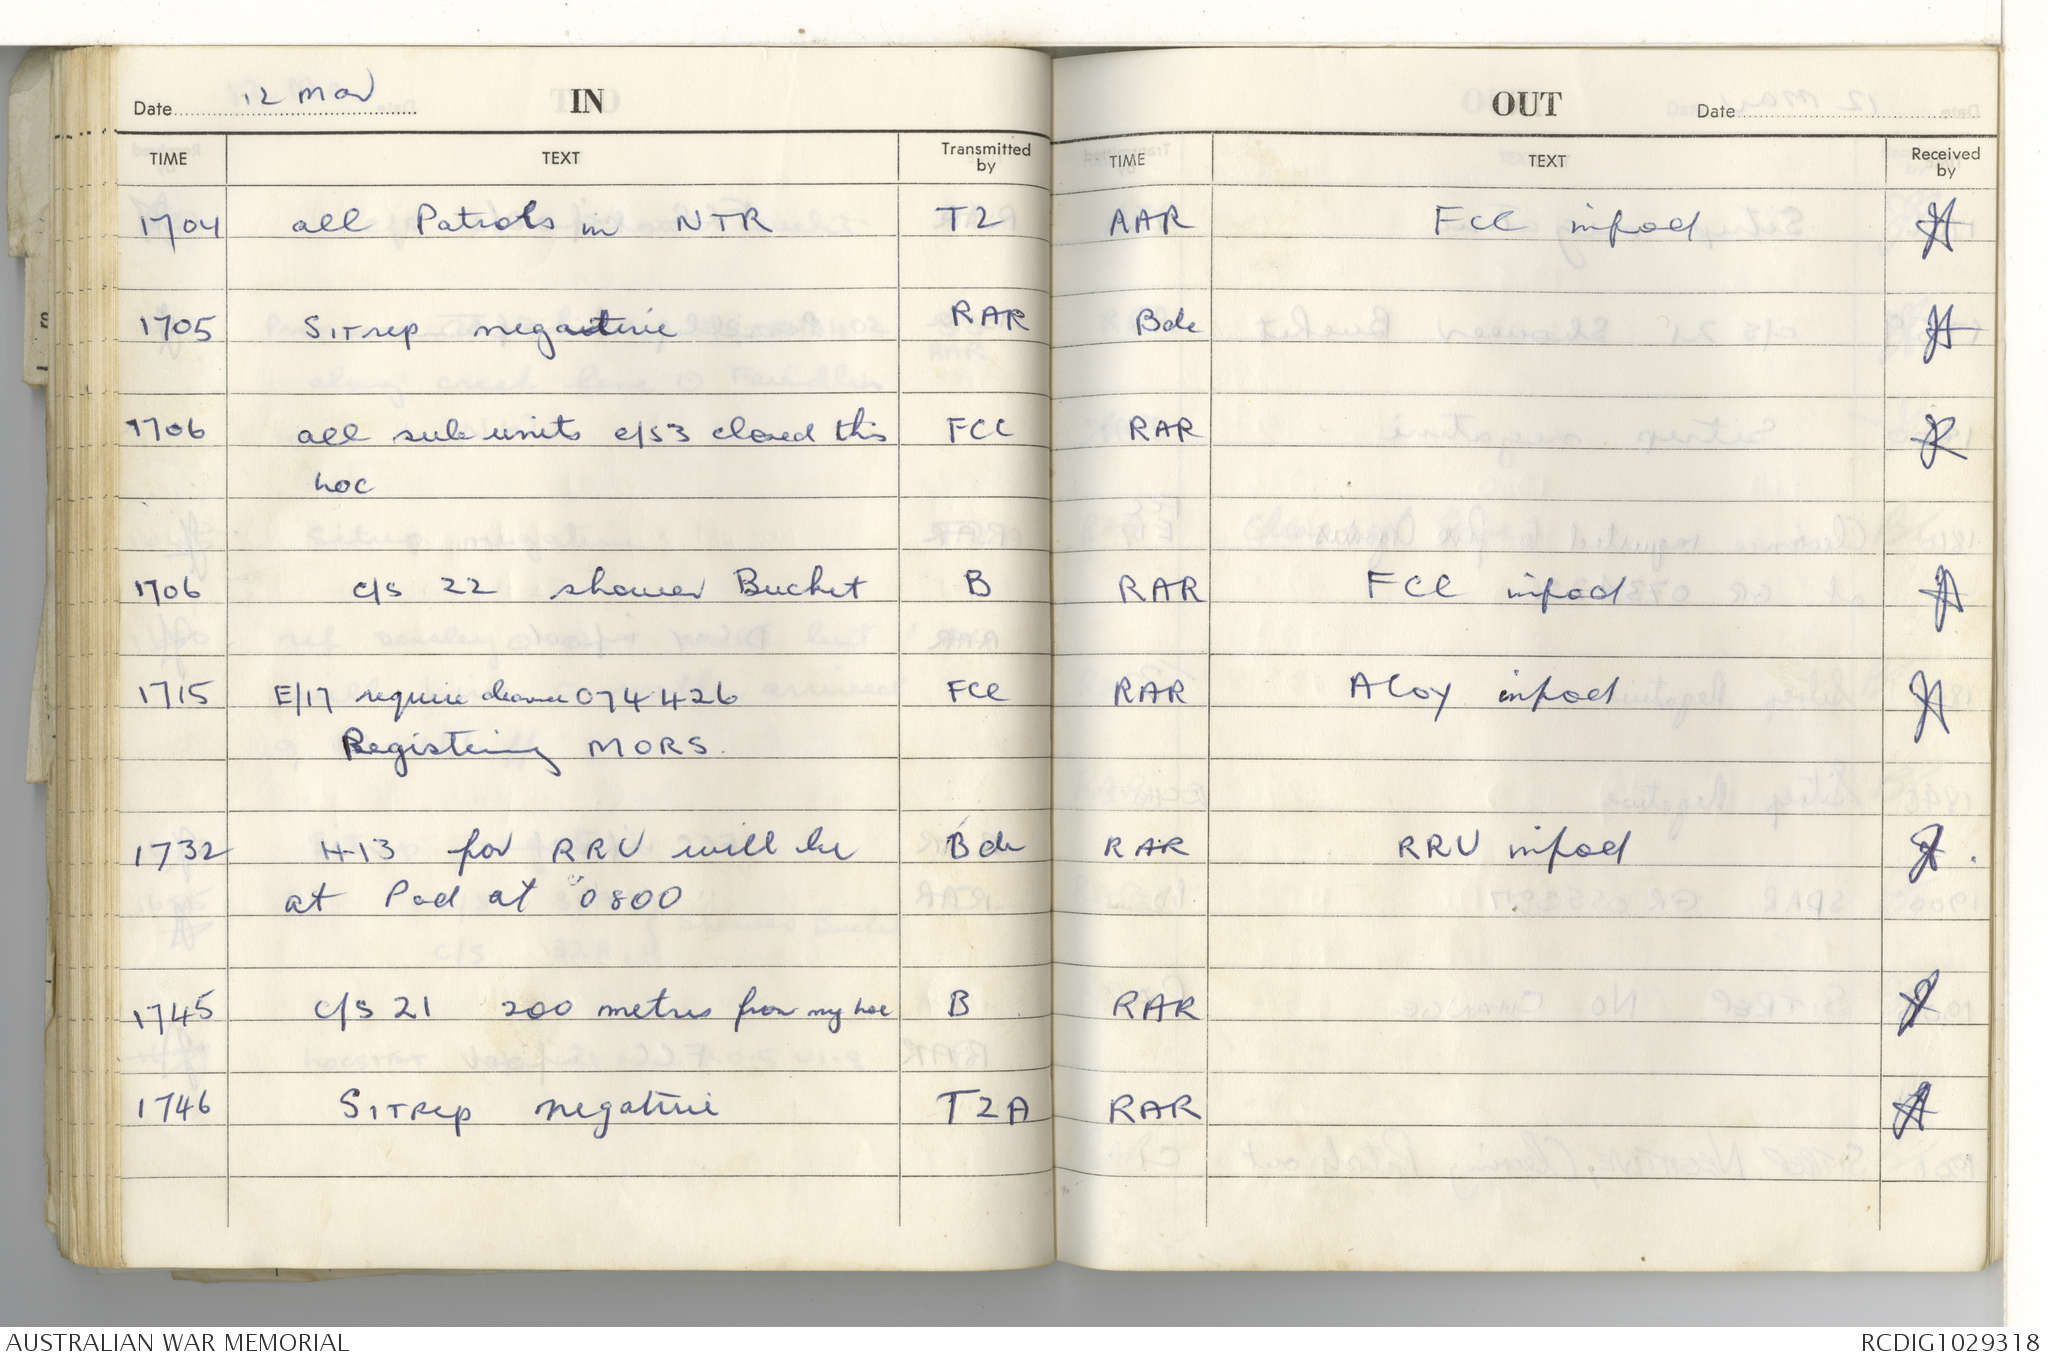 Date 12 Mar IN
TIME TEXT Transmitted by
1704 all Patrols in NTR T2
1705 Sitrep negative RAR
1706 all sub units c/s 3 closed this FCC
hoc
1706 c/s 22 shower Bucket B
1715 E/17 require clearance 074426 FCC
Registering MORS.
1732 H-13 for RRU will be Bde
at Pad at 0800
1745 c/s 21 200 metres from my loc B
1746 Sitrep negative T2A
OUT Date
TIME TEXT Received by
AAR FCC infod
Bde
RAR
RAR FCC infod
RAR A Coy infod
RAR RRU infod
RAR
RAR
AUSTRALIAN WAR MEMORIAL RCDIG1029318